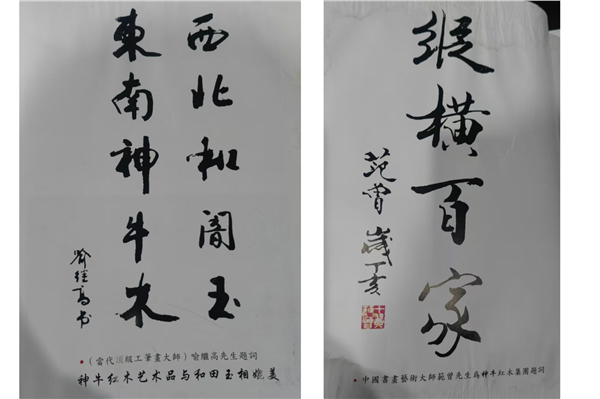 西北和闐玉
東南神牛木
喻继高书
（當代顶級工筆畫大師）喻繼高先生題詞
神牛红木艺术品与和田玉相媲美
縱橫百家
范曾 歲丁亥
中國書畫藝術大師範曾先生爲神牛红木集團題詞